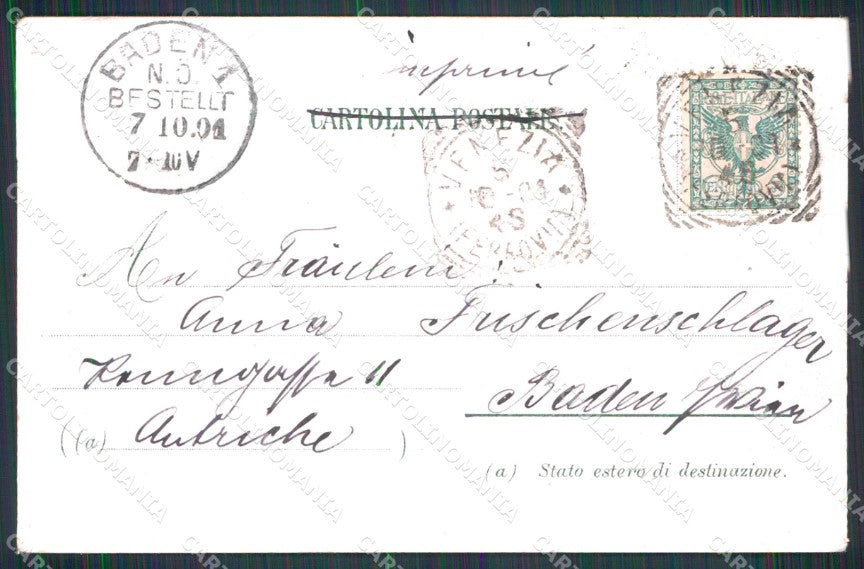 BADEN 1
N.Ö.
BESTELLT
7 10.01
7-10V
imprimé
CARTOLINA POSTALE
VENEZIA
5
(FERROVIA)
An Fräulein
Anna Frischenschlager
Renngasse 11
Baden b/Wien
(a) Autriche
(a) Stato estero di destinazione.
CARTOLINOMANIA